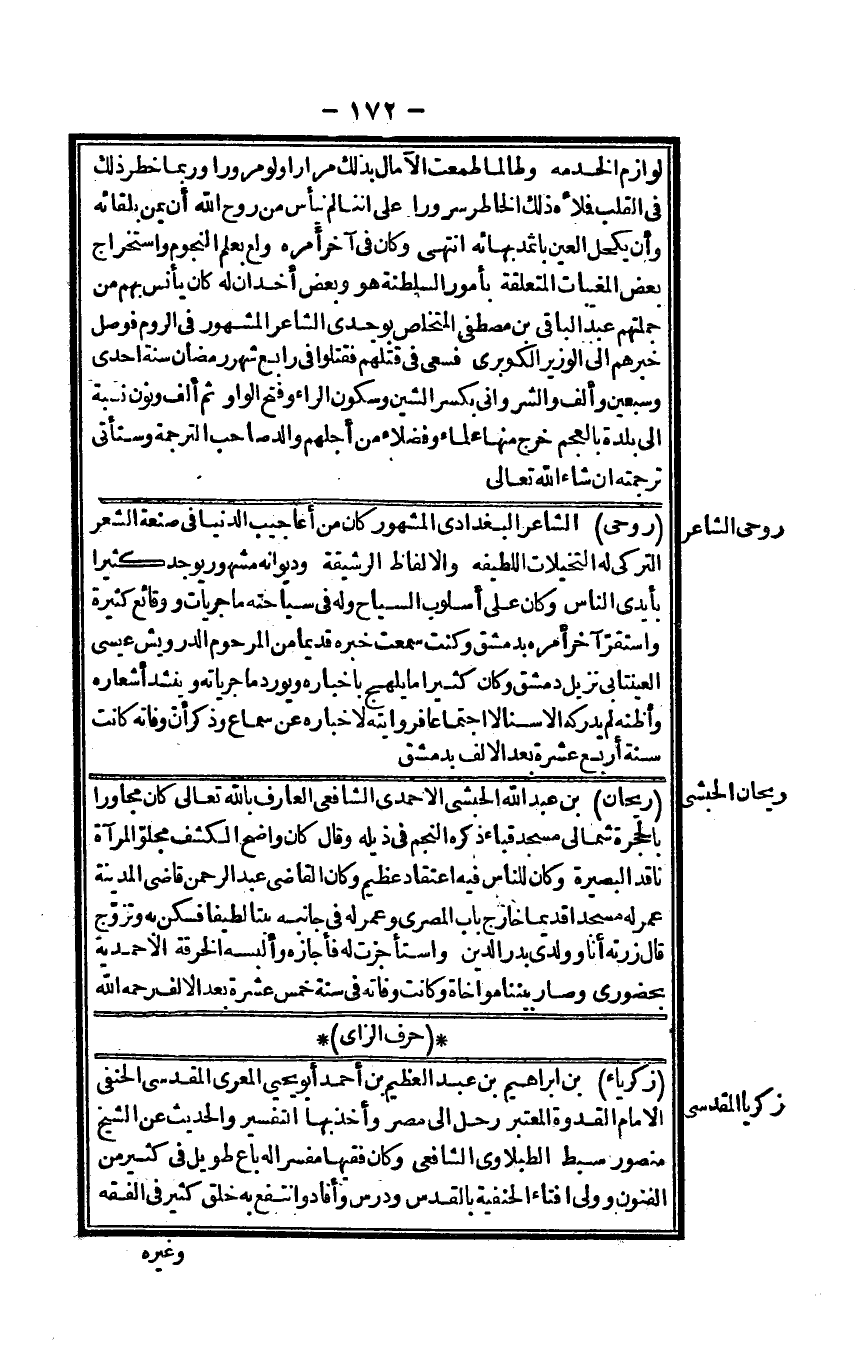 - ١٧٢ -
لوازم الخدمه ولطالما طمعت الآمال بذلك مرارا ولومرورا وربما خطر ذلك
فى القلب فلاءه ذلك الخاطر سرورا على اننالم نيأس من روح الله أن يمن بلقائه
وأن يكحل العين باثمد بهائه انتهى وكان فى آخر أمره ولع بعلم النجوم واستخراج
بعض المغيبات المتعلقة بأمور السلطنة هو وبعض أخدان له كان يأنس بهم من
جملتهم عبد الباقى بن مصطفى المتخلص بوجدى الشاعر المشهور فى الروم فوصل
خبرهم الى الوزير الكوبرى فسعى فى قتلهم فقتلوا فى رابع شهر رمضان سنة احدى
وسبعين وألف والشروانى بكسر الشين وسكون الراء وفتح الواو ثم ألف ونون نسبة
الى بلدة بالعجم خرج منها علماء وفضلاء من أجلهم والد صاحب الترجمة وستأتى
ترجمته ان شاء الله تعالى
روحى الشاعر
(روحى) الشاعر البغدادى المشهور كان من أعاجيب الدنيا فى صنعة الشعر
التركى له التخيلات اللطيفه والالفاظ الرشيقة وديوانه مشهور يوجد كثيرا
بأيدى الناس وكان على أسلوب السياح وله فى سياحته ماجريات ووقائع كثيرة
واستقر آخر أمره بدمشق وكنت سمعت خبره قديما من المرحوم الدرويش عيسى
العينتابى نزيل دمشق وكان كثيرا ما يلهج باخباره ويورد ماجرياته وينشد أشعاره
وأظنه لم يدركه الا سنا لا اجتماعا فروايته لاخباره عن سماع وذكر أن وفاته كانت
سنة أربع عشرة بعد الالف بدمشق
ريحان الحبشى
(ريحان) بن عبد الله الحبشى الاحمدى الشافعى العارف بالله تعالى كان مجاورا
بالحجرة شمالى مسجد قباء ذكره النجم فى ذيله وقال كان واضح الكشف مجلو المرآة
ناقد البصيرة وكان للناس فيه اعتقاد عظيم وكان القاضى عبد الرحمن قاضى المدينة
عمر له مسجدا قديما خارج باب المصرى وعمر له فى جانبه بيتا لطيفا فسكن به وتزوّج
قال زرته أنا وولدى بدر الدين واستأجزت له فأجازه وألبسه الخرقة الاحمدية
بحضورى وصار بيننا مواخاة وكانت وفاته فى سنة خمس عشرة بعد الالف رحمه الله
*(حرف الزاى)*
زكريا المقدسى
(زكرياء) بن ابراهيم بن عبد العظيم بن أحمد أبو يحيى المعرى المقدسى الحنفى
الامام القدوة المعتبر رحل الى مصر وأخذ بها التفسير والحديث عن الشيخ
منصور سبط الطبلاوى الشافعى وكان فقيها مفسرا له باع طويل فى كثير من
الفنون وولى افتاء الحنفية بالقدس ودرس وأفاد وانتفع به خلق كثير فى الفقه
وغيره